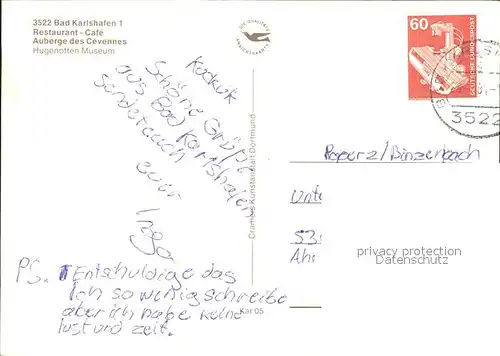 3522 Bad Karlshafen 1
Restaurant - Café
Auberge des Cévennes
Hugenotten Museum
DIE QUALITÄTS
ANSICHTSKARTE
60
DEUTSCHE BUNDESPOST
3522
Kuckuk
Schöne Grüße
aus Bad Karlshafen
sendet auch
euer
Inga
Gramers Kunstanstalt Dortmund
Kar 05
Paperz/Binzenbach
Unte
53
Ahr
privacy protection
VEREMART.COM
PS. Entschuldige das
Ich so wenig schreibe
aber ich habe keine
lust und zeit.